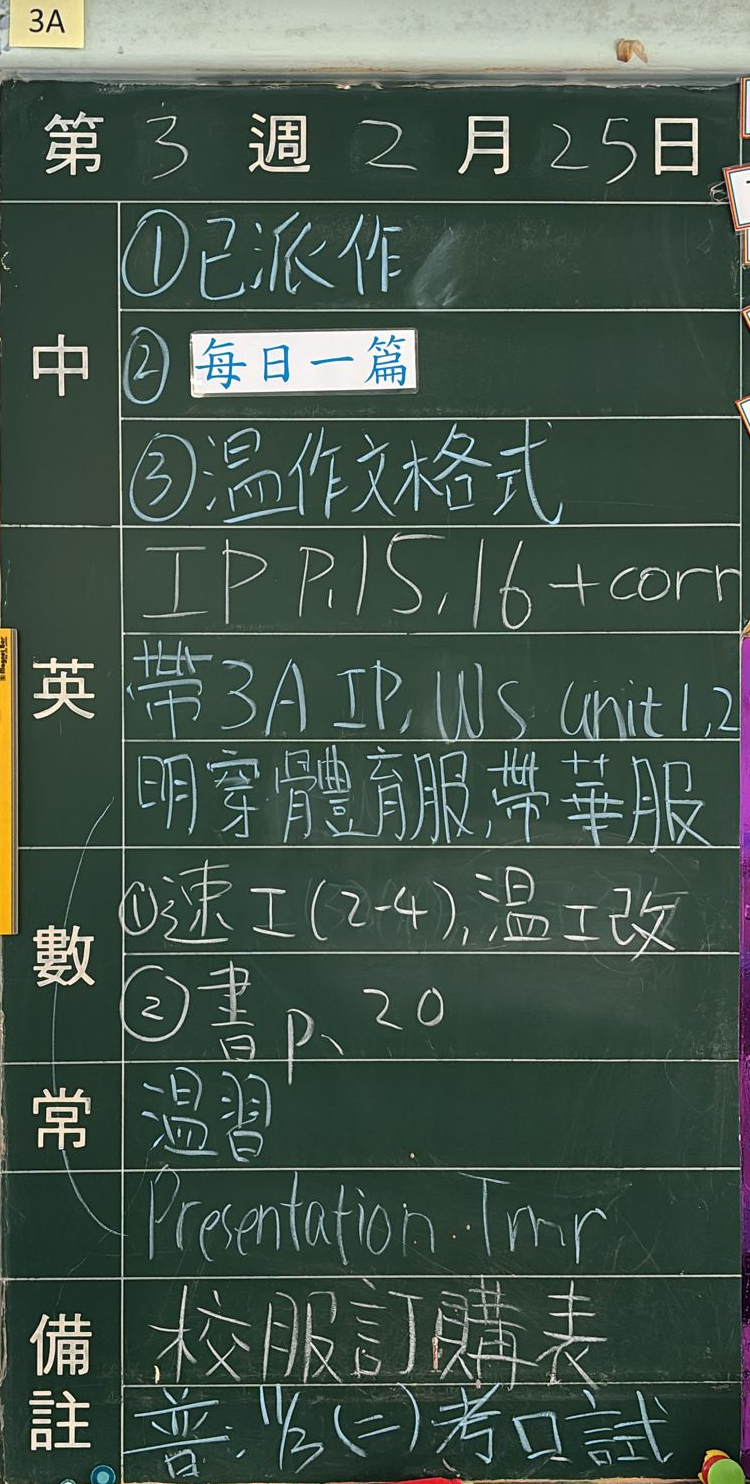 3A
第 3 週 2 月 25 日
中
①已派作
② 每日一篇
③温作文格式
英
IP P.15,16+corr
帶3A IP, WS unit 1,2
明穿體育服,帶華服
數
①速工(2-4),温工改
②書p、20
常
温習
Presentation Tmr
備註
校服訂購表
普: 11/3 (二)考口試